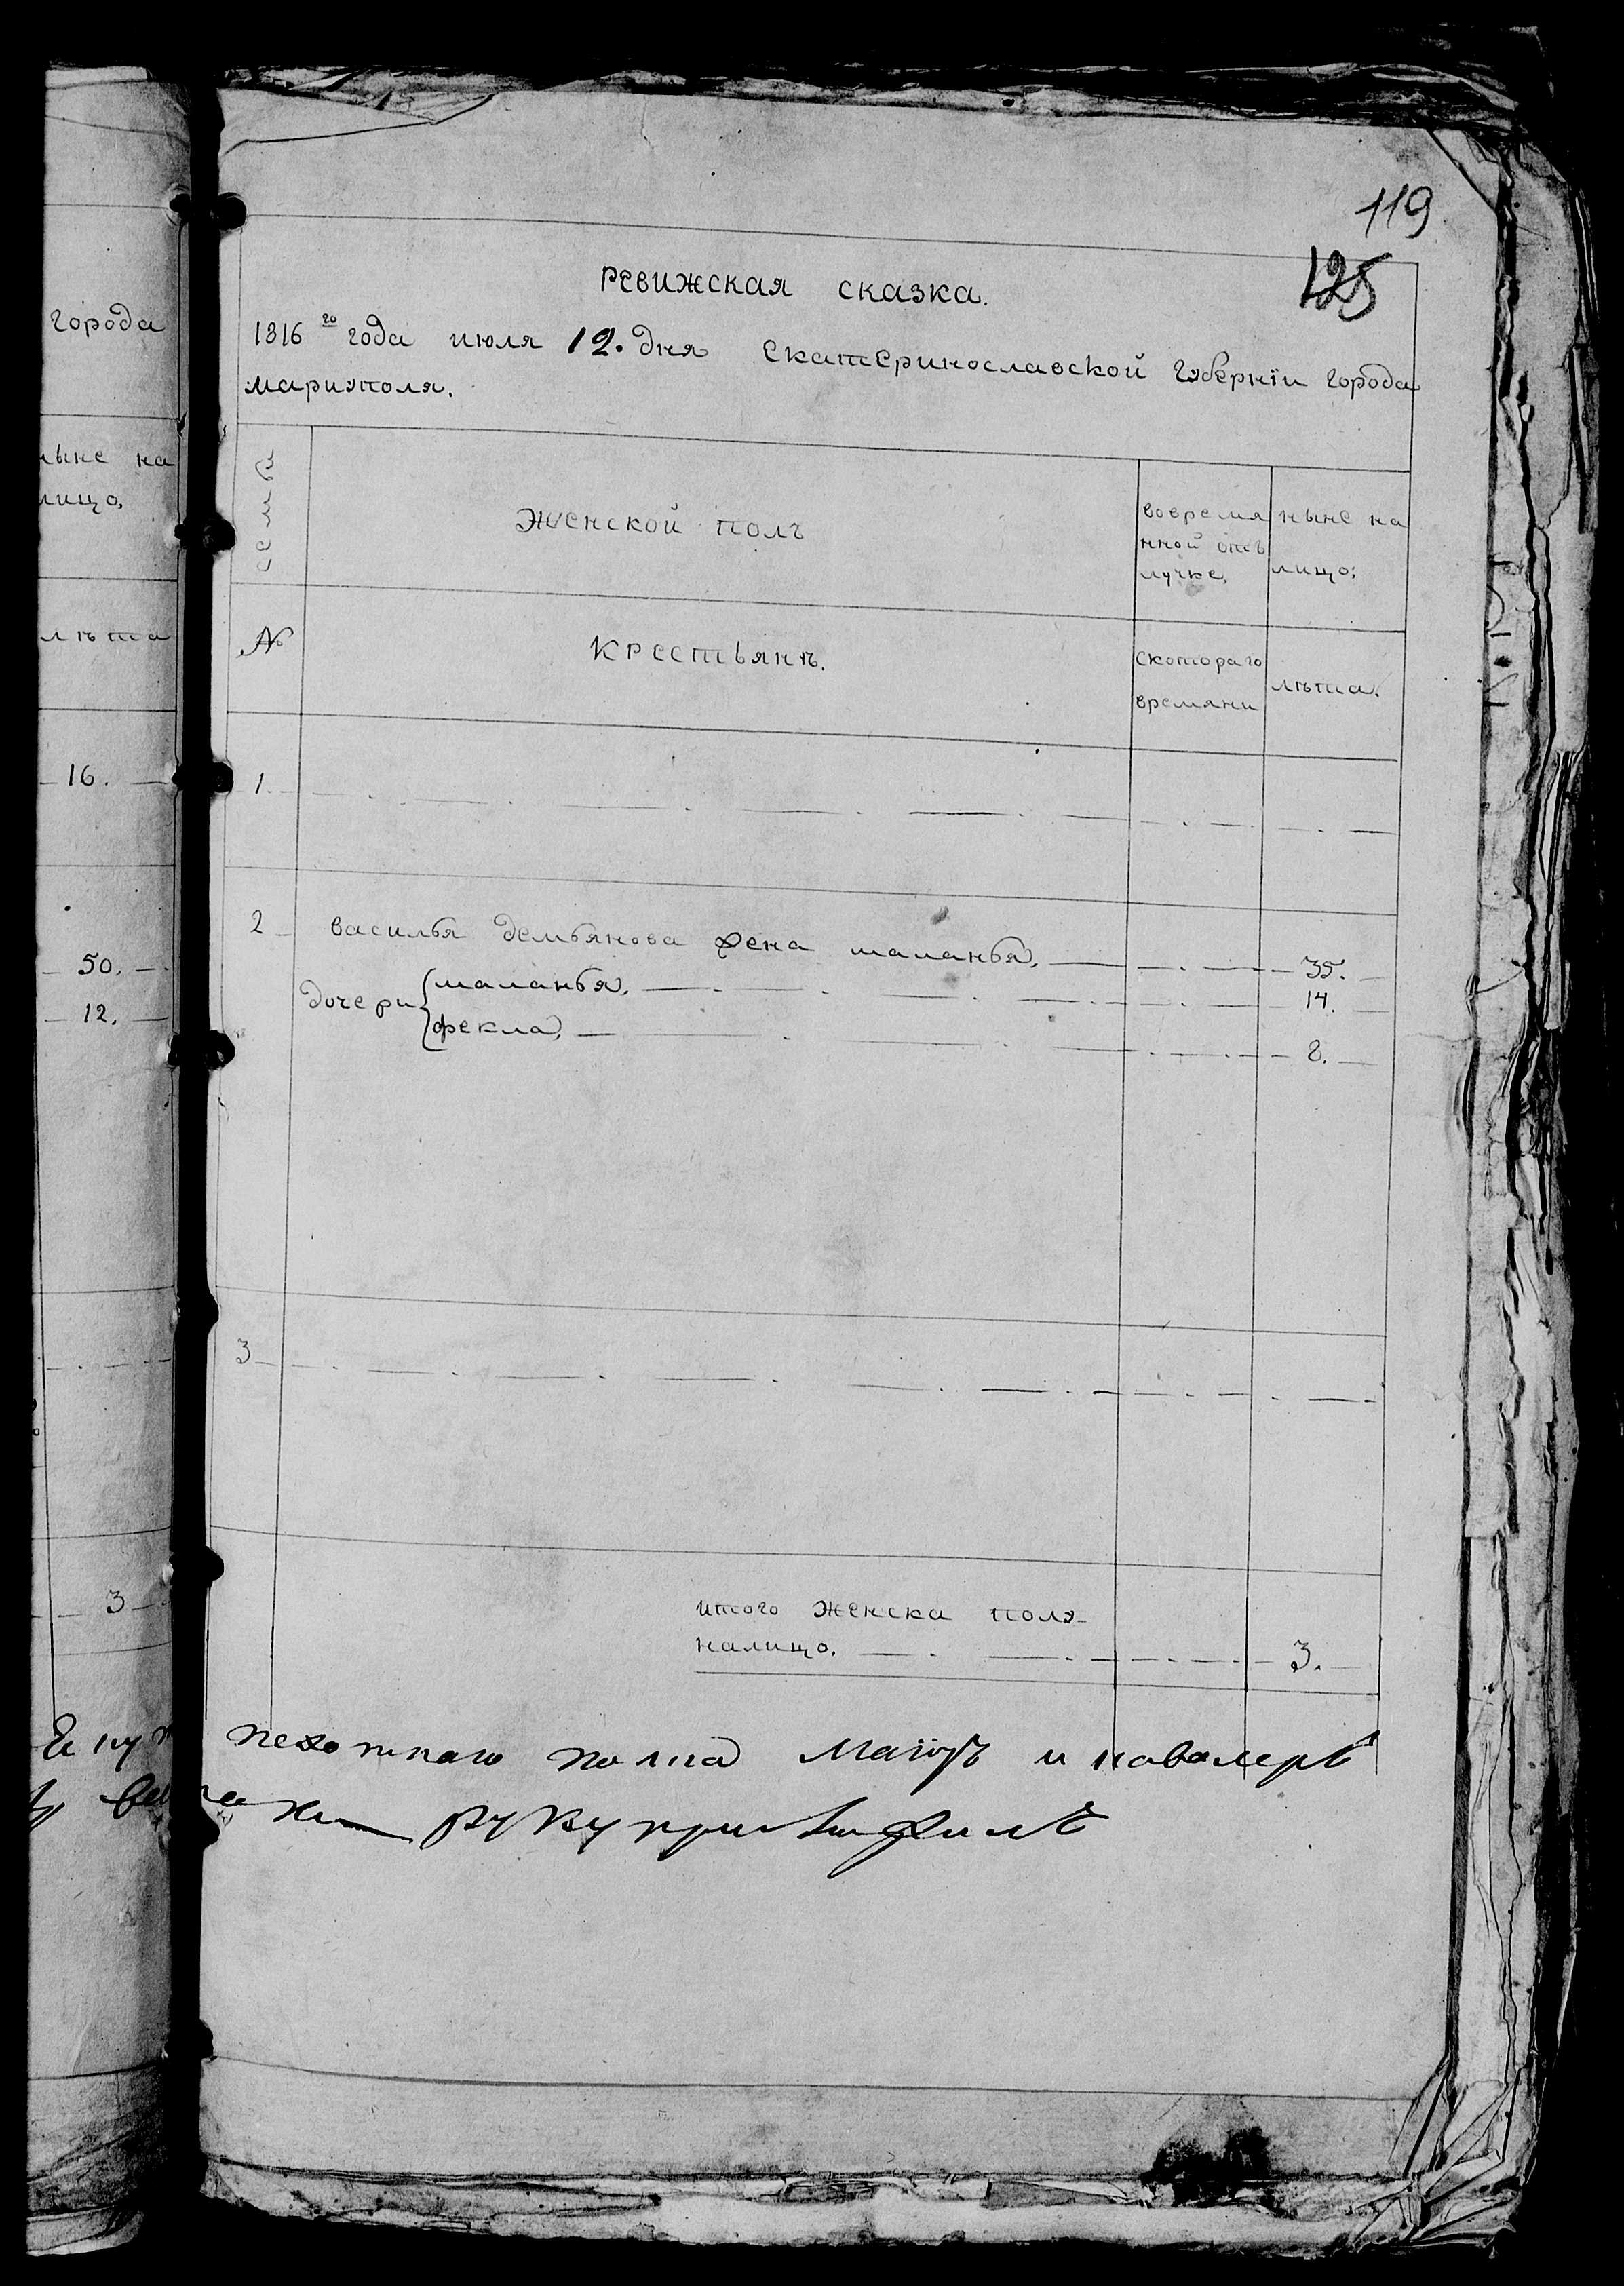 119
125
города
ныне на
лицо,
лѣта
16.
50.
12.
3
Ревижская сказка.
1816 го года июля 12. дня Екатеринославской Губернїи города
мариуполя.
семьи
женской полъ
вовремя
нной отъ
лучке,
ныне на
лицо:
№
крестьянъ.
скотораго
времяни
лѣта.
1.
2
василья демьянова жена маланья,
35.
дочери
маланья.
14.
фекла,
8.
3
итого женска полу
налицо.
3.
пехотнаго полка Маіоръ и кавалеръ
руку приложилъ